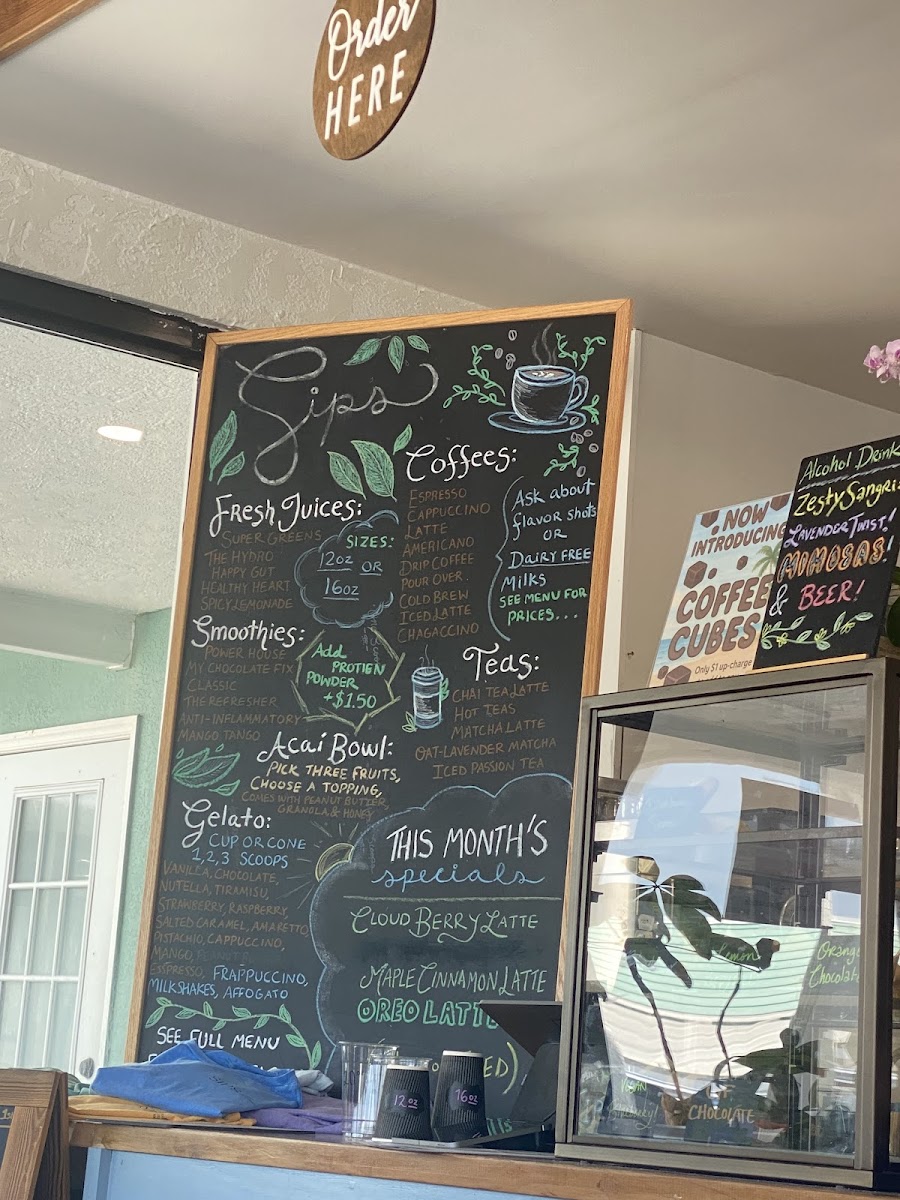 Order
HERE
Sips
Fresh Juices:
SUPER GREENS
THE HYDRO
HAPPY GUT
HEALTHY HEART
SPICY LEMONADE
SIZES:
12oz OR
16oz
Smoothies:
POWER HOUSE
MY CHOCOLATE FIX
CLASSIC
THE REFRESHER
ANTI-INFLAMMATORY
MANGO TANGO
Add
PROTIEN
POWDER
+$1.50
Acai Bowl:
PICK THREE FRUITS,
CHOOSE A TOPPING,
COMES WITH PEANUT BUTTER,
GRANOLA & HONEY
Gelato:
CUP OR CONE
1,2,3 SCOOPS
VANILLA, CHOCOLATE,
NUTELLA, TIRAMISU
STRAWBERRY, RASPBERRY,
SALTED CARAMEL, AMARETTO
PISTACHIO, CAPPUCCINO,
MANGO,
ESPRESSO, FRAPPUCCINO,
MILKSHAKES, AFFOGATO
SEE FULL MENU
Coffees:
ESPRESSO
CAPPUCCINO
LATTE
AMERICANO
DRIP COFFEE
POUR OVER.
COLD BREW
ICED LATTE
CHAGACCINO
Ask about
flavor shots
OR
DAIRY FREE
MILKS
SEE MENU FOR
PRICES...
Teas:
CHAI TEA LATTE
HOT TEAS
MATCHA LATTE
OAT-LAVENDER MATCHA
ICED PASSION TEA
THIS MONTH'S
specials
CLOUD BERRY LATTE
MAPLE CINNAMON LATTE
OREO LATTE
12oz
16oz
NOW
INTRODUCING
COFFEE
CUBES
Only $1 up-charge
Alcohol Drink
Zesty Sangria
LAVENDER TWIST!
MIMOSAS!
& BEER!
Lemon
Orange
Chocolate
VEGAN
CHOCOLATE